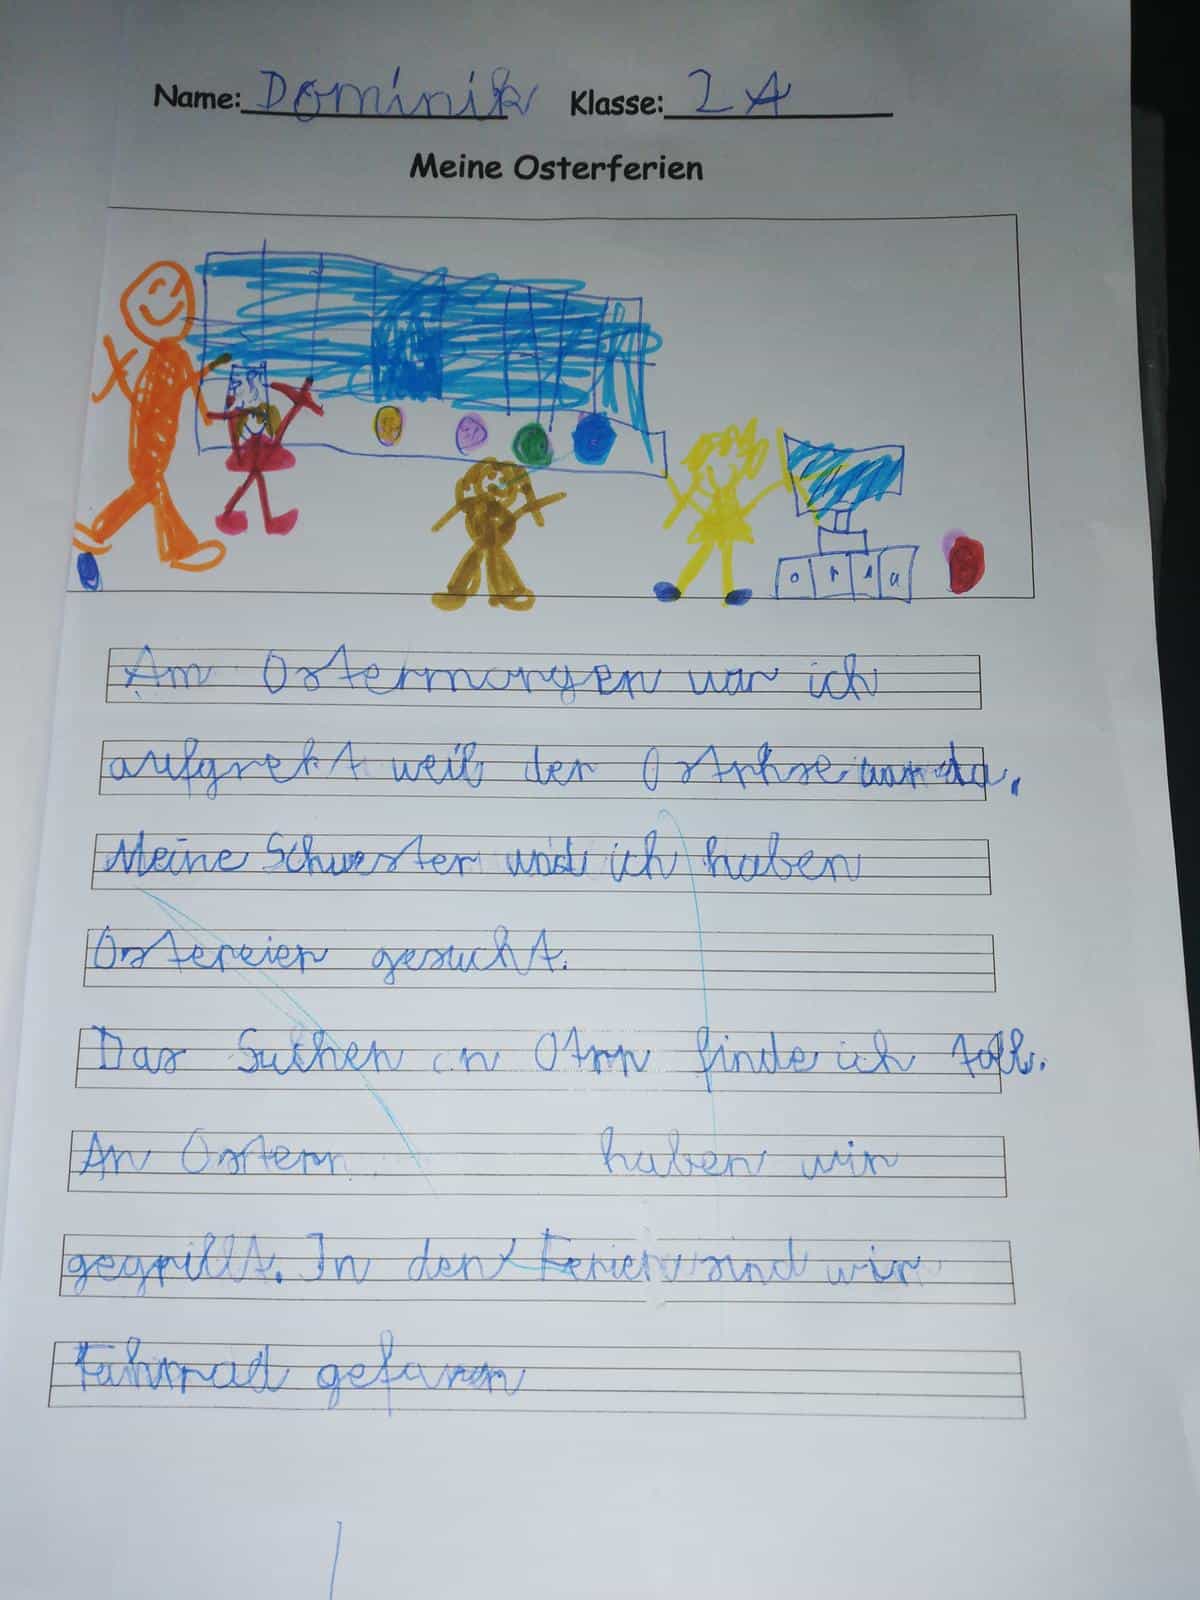 Name: Dominik Klasse: 2A
Meine Osterferien
Am Ostermorgen war ich
aufgrekt weil der Ostrhse war da.
Meine Schwester und ich haben
Ostereier gesucht.
Das Suchen an Otrn finde ich toll.
An Ostern haben wir
gegrillt. In den Ferien sind wir
Fahrrad gefaren